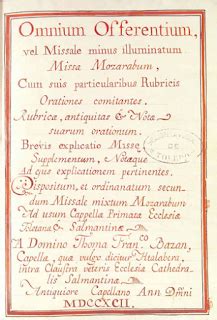 Omnium Offerentium,
vel Missale minus illuminatum
Missa Mozarabum,
Cum suis particularibus Rubricis
Orationes comitantes.
Rubricæ, antiquitas & Nota
suarum orationum.
Brevis explicatio Missæ
Supplementum, Notæque
Ad ejus explicationem pertinentes.
Dispositum, et ordinatum secun
dum Missale mixtum Mozarabum
Ad usum Capellæ Primatæ Ecclesiæ
Toletanæ & Salmantinæ
A Domino Thoma Fran.co Bazan,
Capellæ, quæ vulgo dicitur
intra Claustra veteris Ecclesiæ Cathedra
lis Salmantinæ
Antiquiore Capellano Ann
MDCCXCII.